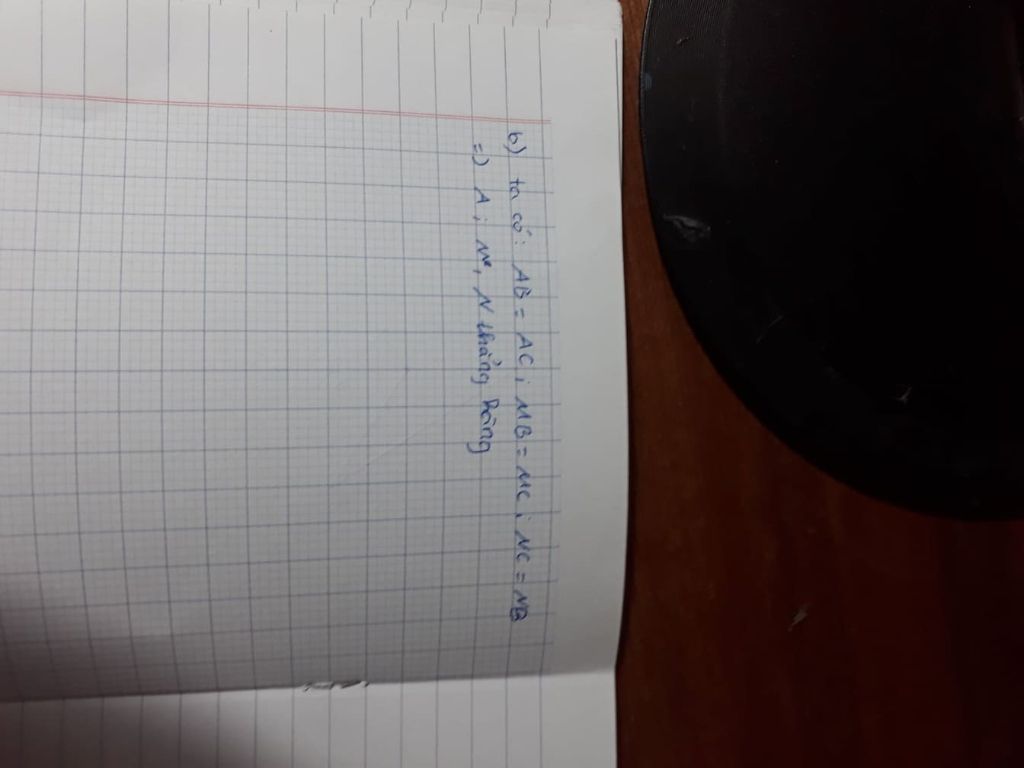 b) ta có: AB = AC; MB = MC; NC = NB
=) A; M, N thẳng hàng